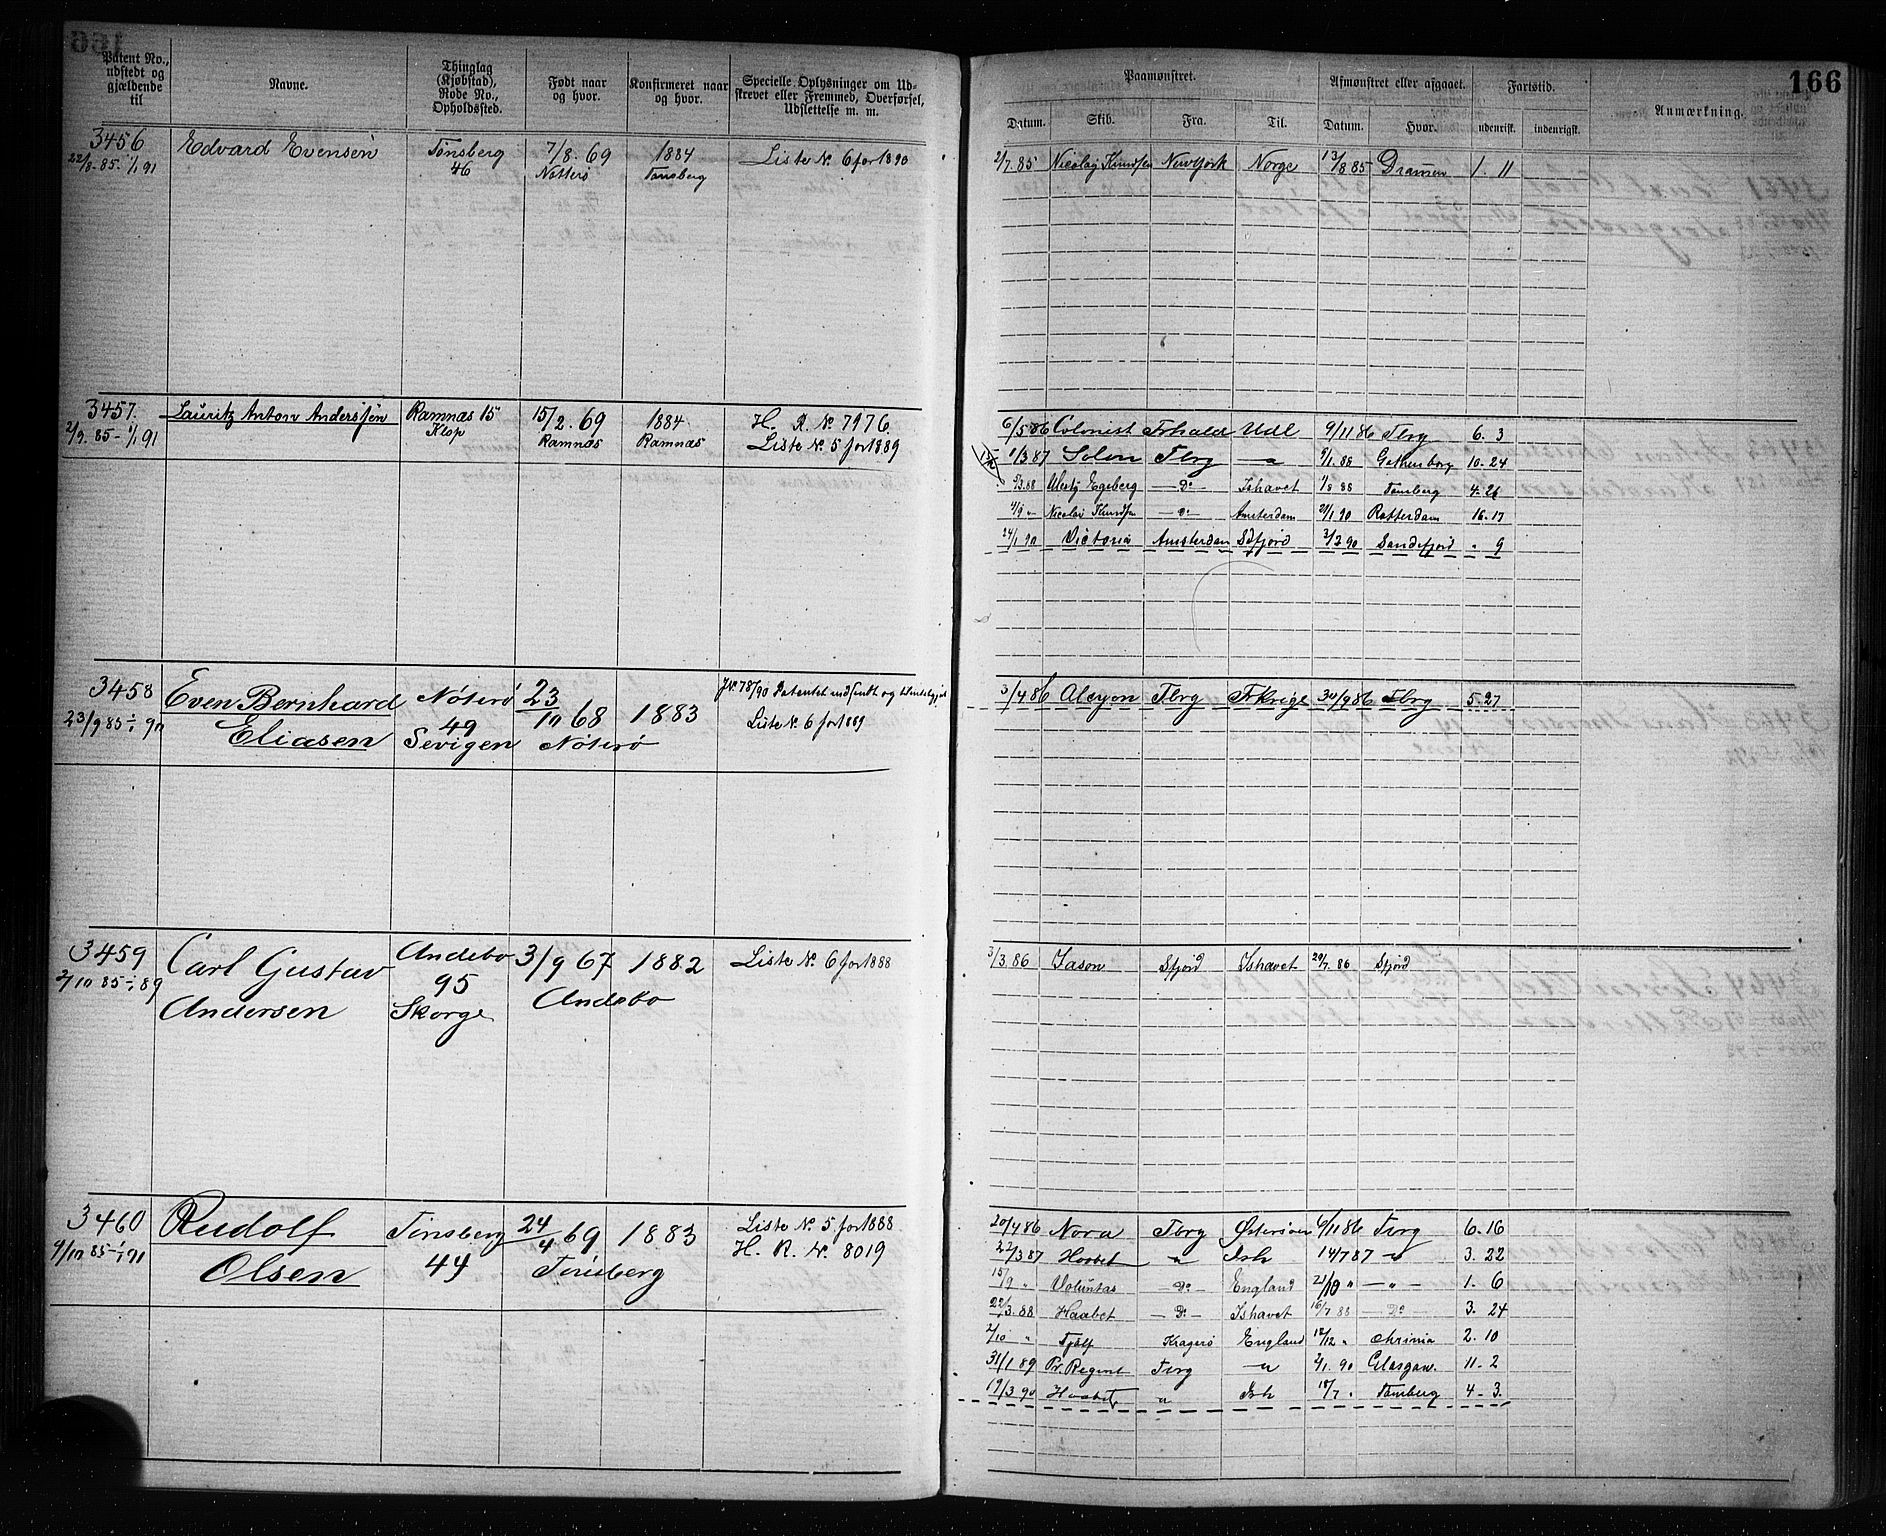 166
Patent No., udstedt og gjældende til
Navne.
Thinglag (Kjøbstad), Rode No., Opholdssted.
Født naar og hvor.
Konfirmeret naar og hvor.
Specielle Oplysninger om Udskrevet eller Fremmed, Overførsel, Udslettelse m. m.
Paamønstret.
Afmønstret eller afgaaet.
Fartstid.
Anmærkning.
Datum. Skib. Fra. Til. Datum. Hvor. udenrisk. indenrigsk.
3456 Edvard Evensen Tønsberg 7/8. 69 1884 Liste No. 6 for 1890
22/8. 85. 1/1 91 46 Nøtterø Tønsberg
2/7. 85 Nicolaj Knudsen New York Norge 13/8 85 Drammen 1. 11
3457. Lauritz Anton Anderssen Ramnæs 15 15/2. 69 1884 H. R. No 7976.
2/9. 85 - 1/1 91 Klop Ramnæs Ramnæs Liste No. 5 for 1889
6/5 86 Colonist Frhald Udl 9/11 86 Tbrg 6. 3
1/3 87 Solon Tbrg — " 9/1. 88 Gothenborg 10. 24
Egeberg — Do — Ishavet 1/8 88 Tønsberg 4. 26
4/9 " Nicolai Knudsen — " — Amsterdam 21/1 90 Rotterdam 16. 17
24/1 90 Victoria Amsterdam Sdfjord 3/3 90 Sandefjord " 9
3458 Even Bernhard Nøterø 23/10 68 1883 JNo. 78/90
23/9 85 - 1/1 90 Eliasen 49 Nøterø Liste No. 6 for 1889
Sevigen
3/4 86 Alcyon Tbrg Frkrige 30/9 86 Tbrg 5. 27
3459 Carl Gustav Andebo 3/9 67 1882 Liste No. 6 for 1888
2/10 85 - 1/1 89 95 Andebo
Andersen Skorge
3/3. 86 Jason Sfjord Ishavet 29/7. 86 Sfjord
3460 Rudolf Tønsberg 24/4 69 1883 Liste No. 5 for 1888
9/10 85 - 1/1 91 Olsen 44 Tønsberg H. R. No. 8019
20/4 86 Nora Tbrg Østersøen 6/11 86 Tbrg 6. 16
22/3 87 Haabet " Ish 14/7 87 — " 3. 22
15/9 " Voluntas — Do — England 21/10 " — " — 1. 6
22/3. 88 Haabet — Do — Ishavet 16/7 88 — Do 3. 24
2/10 " Fjalf Kragerø England 12/12 " Chrinia 2. 10
31/1. 89 Pr. Regent Tbrg — " 2/1. 90 Glasgow. 11. 2
19/3. 90 Haabet " Ish 18/7 " Tønsberg 4. 3.